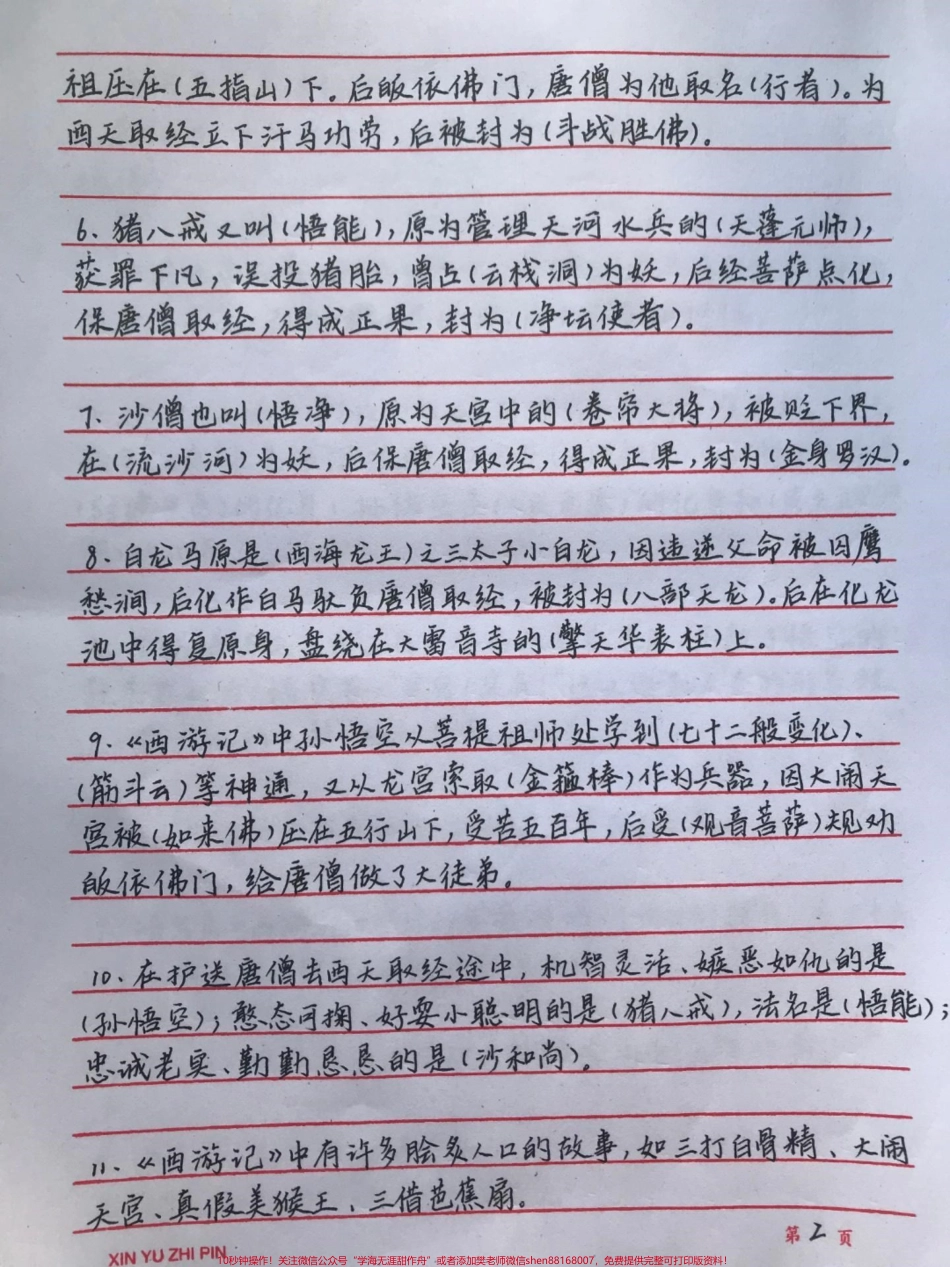 祖压在(五指山)下。后皈依佛门,唐僧为他取名(行者)。为
西天取经立下汗马功劳,后被封为(斗战胜佛)。
6、猪八戒又叫(悟能),原为管理天河水兵的(天蓬元帅),
获罪下凡,误投猪胎,曾占(云栈洞)为妖,后经菩萨点化,
保唐僧取经,得成正果,封为(净坛使者)。
7、沙僧也叫(悟净),原为天宫中的(卷帘大将),被贬下界,
在(流沙河)为妖,后保唐僧取经,得成正果,封为(金身罗汉)。
8、白龙马原是(西海龙王)之三太子小白龙,因违逆父命被囚鹰
愁涧,后化作白马驮负唐僧取经,被封为(八部天龙)。后在化龙
池中得复原身,盘绕在大雷音寺的(擎天华表柱)上。
9、《西游记》中孙悟空从菩提祖师处学到(七十二般变化)、
(筋斗云)等神通,又从龙宫索取(金箍棒)作为兵器,因大闹天
宫被(如来佛)压在五行山下,受苦五百年,后受(观音菩萨)规劝
皈依佛门,给唐僧做了大徒弟。
10、在护送唐僧去西天取经途中,机智灵活、嫉恶如仇的是
(孙悟空);憨态可掬、好耍小聪明的是(猪八戒),法名是(悟能);
忠诚老实、勤勤恳恳的是(沙和尚)。
11、《西游记》中有许多脍炙人口的故事,如三打白骨精、大闹
天宫、真假美猴王、三借芭蕉扇。
第2页
XIN YU ZHI PIN
10秒钟操作!关注微信公众号“学海无涯甜作舟”或者添加樊老师微信shen88168007,免费提供完整可打印版资料!